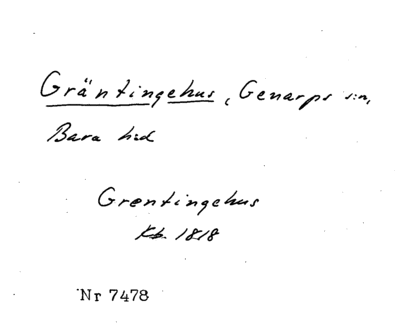 Gräntingehus, Genarps s:n,
Bara hd
Grentingehus
Kb. 1818
Nr 7478